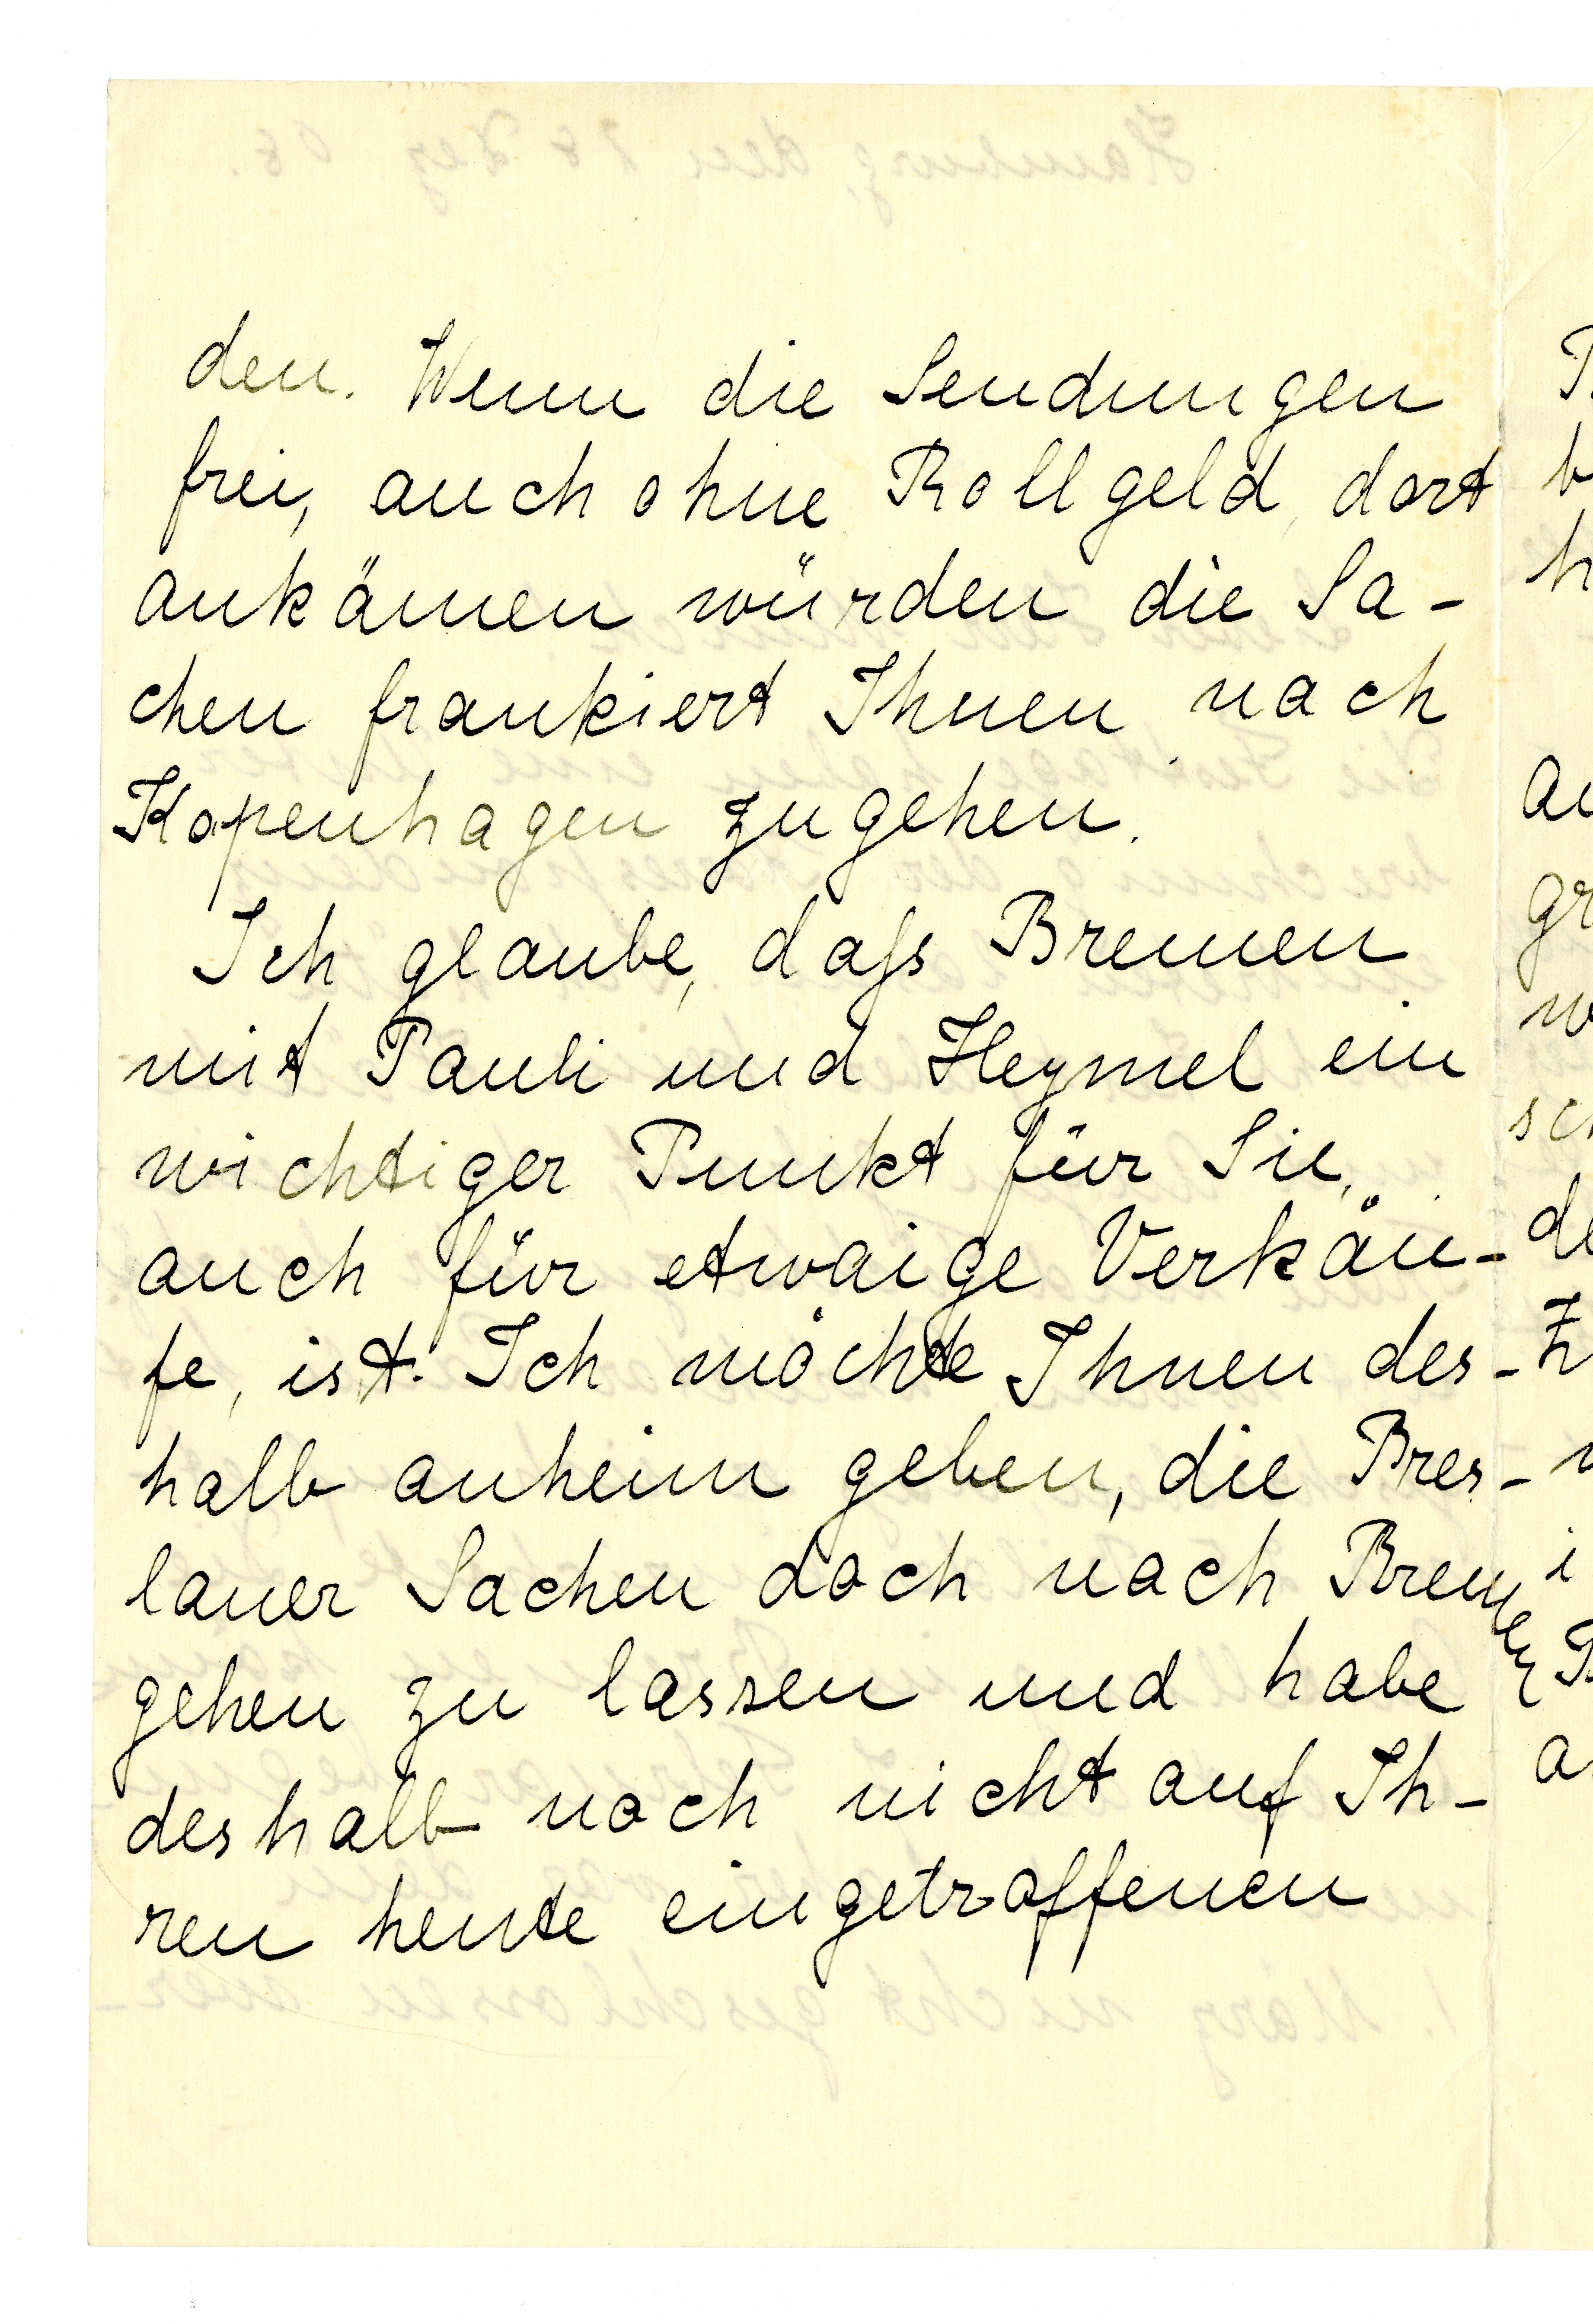 den. Wenn die Sendungen
frei, auch ohne Rollgeld, dort
ankämen würden die Sa-
chen frankiert Ihnen nach
Kopenhagen zugehen.
Ich glaube, dass Bremen
mit Pauli und Heymel ein
wichtiger Punkt für Sie,
auch für etwaige Verkäu-
fe, ist. Ich möchte Ihnen des-
halb anheim geben, die Bres-
lauer Sachen doch nach Bremen
gehen zu lassen und habe
deshalb noch nicht auf Ih-
ren heute eingetroffenen